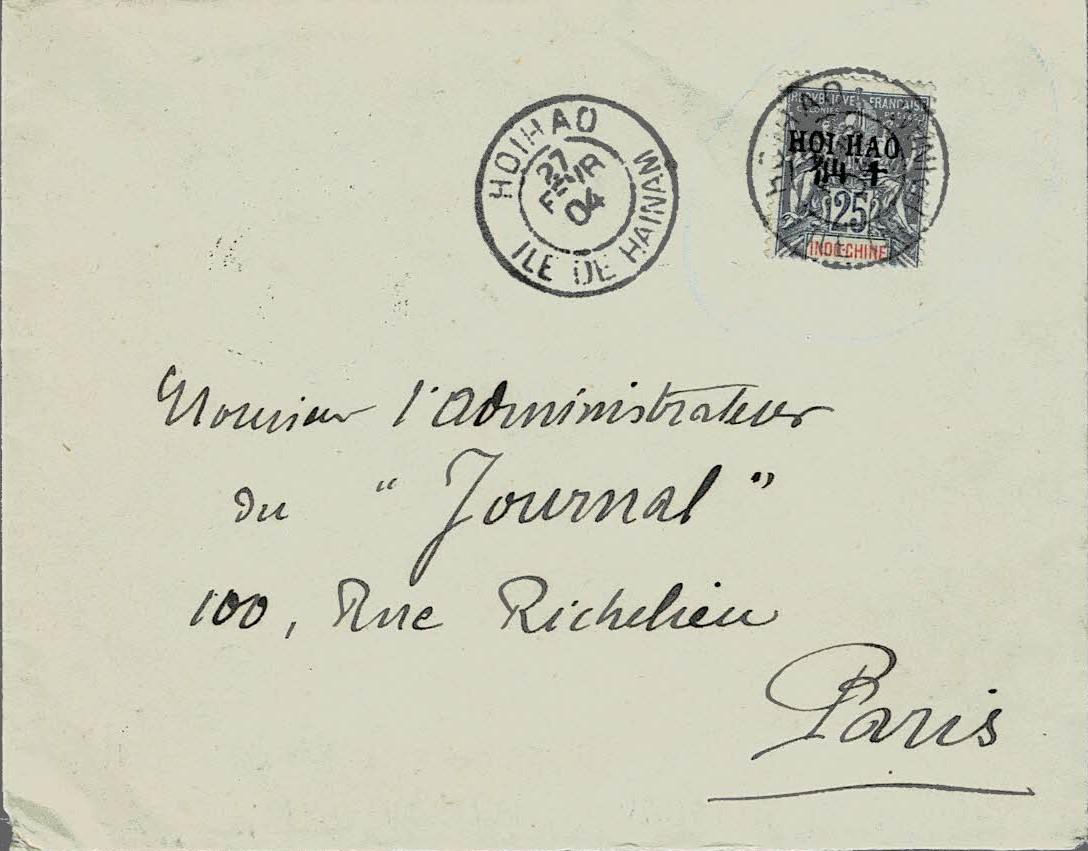 HOIHAO
27
FEVR
04
ILE DE HAINAM
REPUBLIQUE FRANCAISE
COLONIES
HOI HAO
25
INDO-CHINE
Monsieur l'Administrateur
du "Journal"
100, Rue Richelieu
Paris